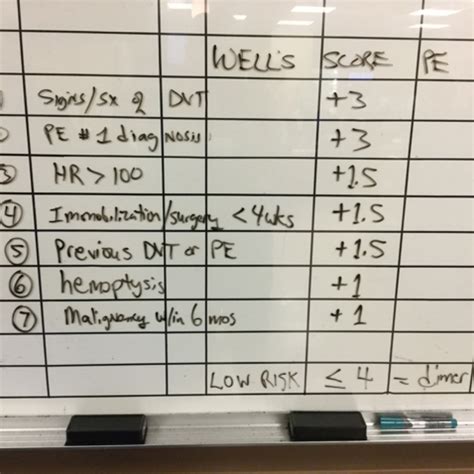 WELL'S SCORE PE
Signs/Sx of DVT +3
PE #1 diagnosis +3
③ HR > 100 +1.5
④ Immobilization/surgery < 4wks +1.5
⑤ Previous DVT or PE +1.5
⑥ hemoptysis +1
⑦ Malignancy w/in 6 mos +1
LOW RISK ≤ 4 = dimer